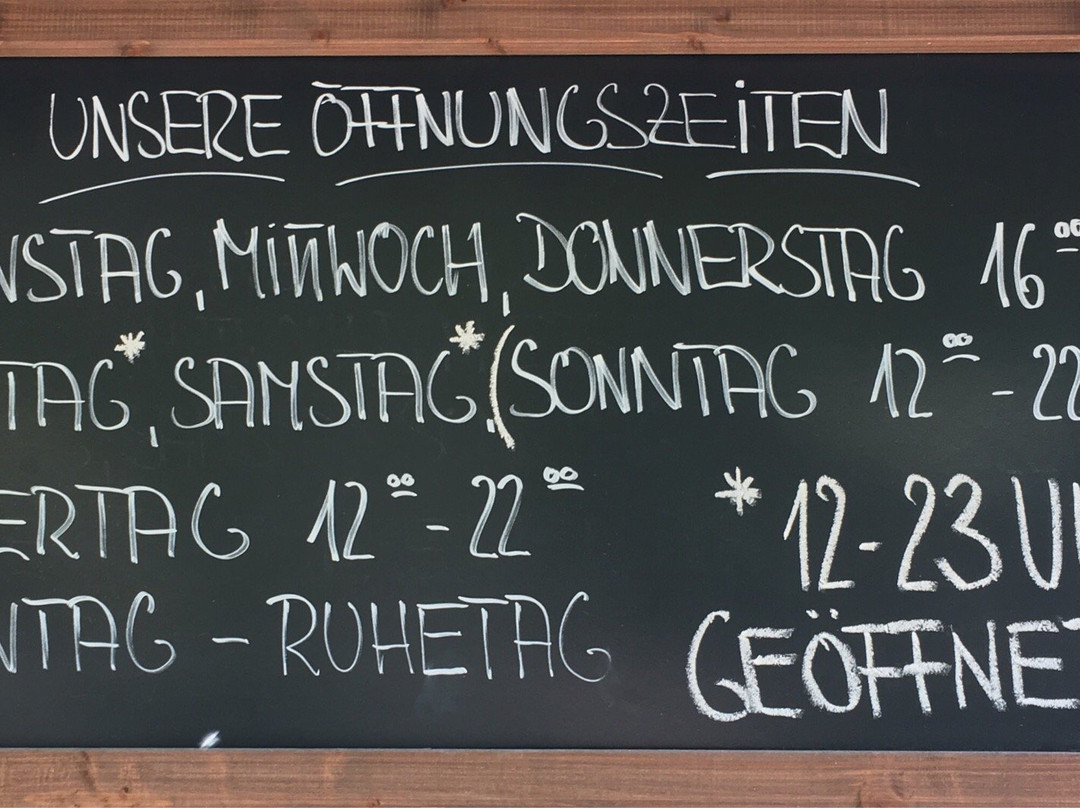 UNSERE ÖFFNUNGSZEiTEN
NSTAG, MiTTWOCH, DONNERSTAG 16⁰⁰
TAG*, SAMSTAG*, (SONNTAG 12⁰⁰ - 22
ERTAG 12⁰⁰ - 22⁰⁰
NTAG - RUHETAG
* 12-23 U
GEÖFFNET